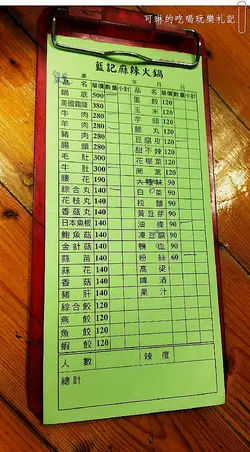 可琳的吃喝玩樂札記
藍記麻辣火鍋
桌 年 月 日
品名 單價 數量 小計 品名 單價 數量 小計
鍋底 500 蛋餃 120
美國霜降 380 玉米 120
牛肉 280 芋頭 120
羊肉 280 脆丸 120
豬肉 280 豆腐皮 120
腸頭 280 甜不辣 120
毛肚 300 花椰菜 120
牛肚 300 茼蒿 120
腰花 190 大陸妹 90
綜合丸 140 白菜 90
花枝丸 140 拉麵 90
香菇丸 140 黃豆芽 90
日本魚板 140 油條 90
鮑魚菇 140 凍豆腐 90
金針菇 140 鴨血 90
蒜苗 140 粉絲 60
蒜花 140 高梁
香菇 140 啤酒
豬肝 140 果汁
綜合餃 120
燕餃 120
魚餃 120
蝦餃 120
人數 辣度
總計